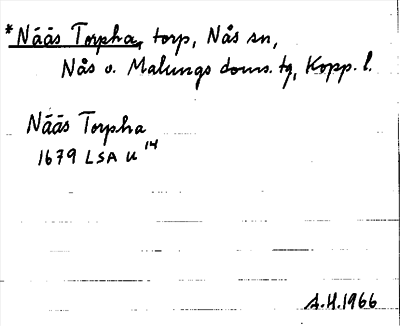 *Nääs Torpha, torp, Nås sn,
Nås o. Malungs doms. tg, Kopp. l.
Nääs Torpha
1679 LSA U 14
A.H.1966